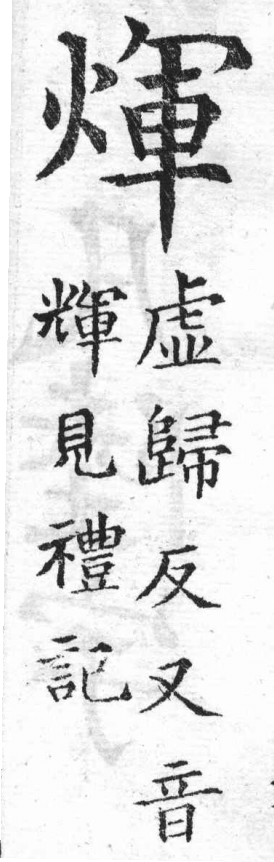 煇
虛歸反又音
輝見禮記